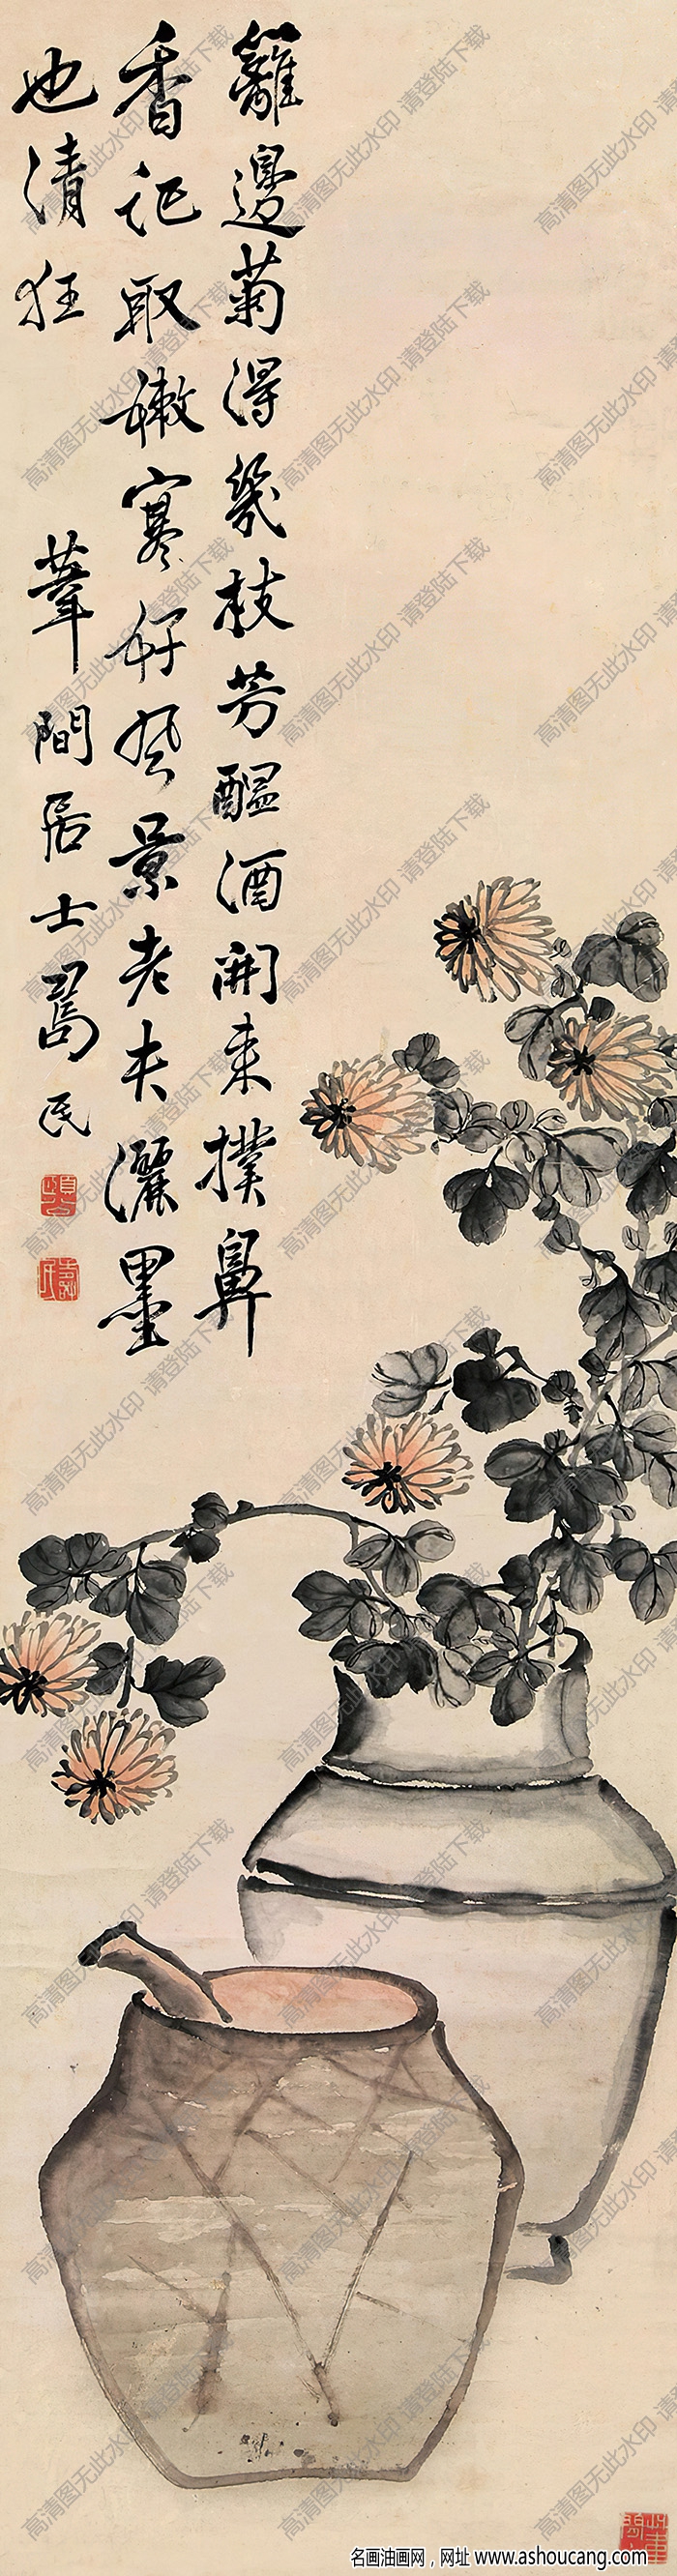 籬邊菊得幾枝芳醞酒開来撲鼻
香記取嫩寒好風景老夫灑墨
也清狂
葦間居士
民
高清图无此水印 请登陆下载
名画油画网，网址 www.ashoucang.com